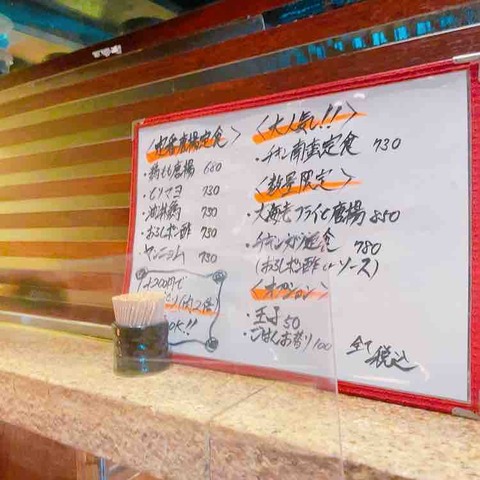 唐揚定食
・鶏もも唐揚 680
730
・油淋鶏 730
・おろしポン酢 730
・ヤンニョム 730
+200円で
OK!!
<大人気!!>
・チキン南蛮定食 730
<数量限定>
・大海老フライと唐揚 850
・チキンカツ定食 780
(おろしポン酢 or ソース)
<オプション>
・玉子 50
・ごはんお替り 100
全て税込